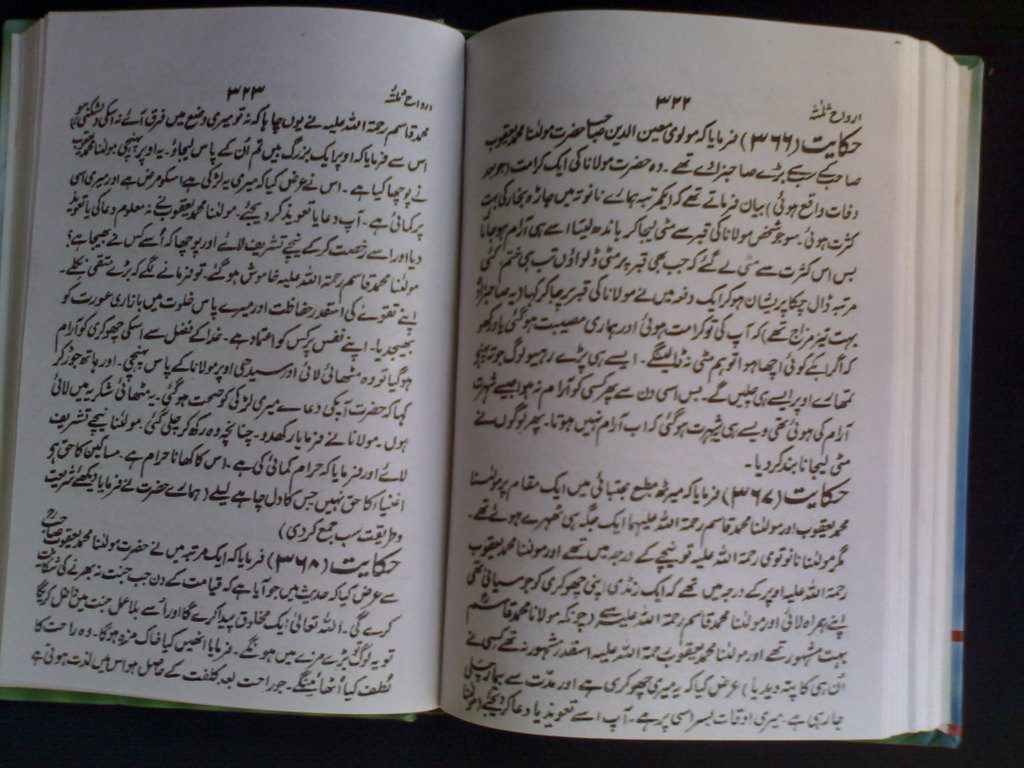 ارواح ثلٰثہ
۳۲۲
حکایت (۳۶۶) فرمایا کہ مولوی معین الدین صاحب حضرت مولٰنا محمد یعقوب
صاحب کے سب سے بڑے صاحبزادے تھے۔ وہ حضرت مولانا کی ایک کرامت (جو بعد
وفات واقع ہوئی) بیان فرماتے تھے کہ ایک مرتبہ ہمارے نانوتہ میں جاڑہ بخار کی بہت
کثرت ہوئی۔ سو جو شخص مولانا کی قبر سے مٹی لیجا کر باندھ لیتا اسے ہی آرام ہو جاتا
بس اس کثرت سے مٹی لے گئے کہ جب بھی قبر پر مٹی ڈلواؤں تب ہی ختم کئی
مرتبہ ڈال چکا پریشان ہو کر ایک دفعہ میں نے مولانا کی قبر پر جا کر کہا (یہ صاحبزادے
بہت تیز مزاج تھے) کہ آپ کی تو کرامت ہوئی اور ہماری مصیبت ہو گئی یاد رکھو
کہ اگر اب کے کوئی اچھا ہوا تو ہم مٹی نہ ڈالینگے۔ ایسے ہی پڑے رہیو لوگ جوتہ پہنے
تمھارے اوپر ایسے ہی چلیں گے۔ بس اسی دن سے پھر کسی کو آرام نہ ہوا جیسے شہرت
آرام کی ہوئی تھی ویسے ہی یہ شہرت ہو گئی کہ اب آرام نہیں ہوتا۔ پھر لوگوں نے
مٹی لیجانا بند کر دیا۔
حکایت (۳۶۷) فرمایا کہ میرٹھ مطبع مجتبائی میں ایک مقام پر مولٰنا
محمد یعقوب اور مولٰنا محمد قاسم رحمۃ اللہ علیہما ایک جگہ ہی ٹھہرے ہوئے تھے۔
مگر مولٰنا نانوتوی رحمۃ اللہ علیہ تو نیچے کے درجہ میں تھے اور مولٰنا محمد یعقوب
رحمۃ اللہ علیہ اوپر کے درجہ میں تھے کہ ایک رنڈی اپنی چھوکری کو جو سیانی تھی
اپنے ہمراہ لائی اور مولٰنا محمد قاسم رحمۃ اللہ علیہ سے (چونکہ مولانا محمد قاسم
بہت مشہور تھے اور مولٰنا محمد یعقوب رحمۃ اللہ علیہ اسقدر مشہور نہ تھے کسی نے
ان ہی کا پتہ دیدیا) عرض کیا کہ یہ میری چھوکری ہے اور مدت سے بیمار چلی
جا رہی ہے۔ میری اوقات بسر اسی پر ہے۔ آپ اسے تعویذ یا دعا کر دیجئے (مولٰنا
ارواح ثلٰثہ
۳۲۳
محمد قاسم رحمۃ اللہ علیہ نے یوں چاہا کہ نہ تو میری وضع میں فرق آئے نہ اسکی دلشکنی ہو
اس سے فرمایا کہ اوپر ایک بزرگ ہیں تم اُن کے پاس لیجاؤ۔ یہ اوپر پہنچی مولٰنا محمد یعقوب
نے پوچھا کیا ہے۔ اس نے عرض کیا کہ میری یہ لڑکی ہے اسکو مرض ہے اور میری اسی
پر کمائی ہے۔ آپ دعا یا تعویذ کر دیجئے۔ مولٰنا محمد یعقوب نے نہ معلوم دعا کی یا تعویذ
دیا اور اسے رخصت کر کے نیچے تشریف لائے اور پوچھا کہ اُسے کس نے بھیجا ہے؟
مولٰنا محمد قاسم رحمۃ اللہ علیہ خاموش ہو گئے۔ تو فرمانے لگے کہ بڑے متقی نکلے۔
اپنے تقوے کی اسقدر حفاظت اور میرے پاس خلوت میں بازاری عورت کو
بھیجدیا۔ اپنے نفس پر کس کو اعتماد ہے۔ خدا کے فضل سے اسکی چھوکری کو آرام
ہو گیا تو وہ مٹھائی لائی اور سیدھی اوپر مولانا کے پاس پہنچی۔ اور ہاتھ جوڑ کر
کہا کہ حضرت آپکی دعا سے میری لڑکی کو صحت ہو گئی۔ یہ مٹھائی شکریہ میں لائی
ہوں۔ مولانا نے فرمایا رکھدو۔ چنانچہ وہ رکھ کر چلی گئی۔ مولٰنا نیچے تشریف
لائے اور فرمایا کہ حرام کمائی کی ہے۔ اس کا کھانا حرام ہے۔ مساکین کا حق ہو
اغنیاء کا حق نہیں جس کا دل چاہے لیلے (ہمارے حضرت نے فرمایا دیکھئے شریعت
و طریقت سب جمع کر دی)
حکایت (۳۶۸) فرمایا کہ ایک مرتبہ میں نے حضرت مولٰنا محمد یعقوب صاحب
سے عرض کیا کہ حدیث میں جو آیا ہے کہ قیامت کے دن جب جنت نہ بھرنے کی شکایت
کرے گی۔ اللہ تعالیٰ ایک مخلوق پیدا کرے گا اور اُسے بلا عمل جنت میں داخل کریگا
تو یہ لوگ بڑے مزے میں ہونگے۔ فرمایا انھیں کیا خاک مزہ ہو گا۔ وہ راحت کا
لُطف کیا اٹھائینگے۔ جو راحت بعد کلفت کے حاصل ہو اس میں لذت ہوتی ہے